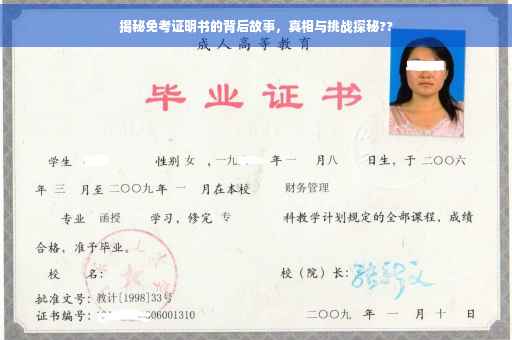 揭秘免考证明书的背后故事，真相与挑战探秘??
成人高等教育
毕业证书
学生 性别 女 ，一九 年 一 月 八 日生，于 二〇〇六
年 三 月至 二〇〇九 年 一 月在本校 财务管理
专业 函授 学习，修完 专 科教学计划规定的全部课程，成绩
合格，准予毕业。
校 名： 校（院）长：
批准文号：教计[1998]33号
证书编号： 06001310 二〇〇九 年 一 月 十 日